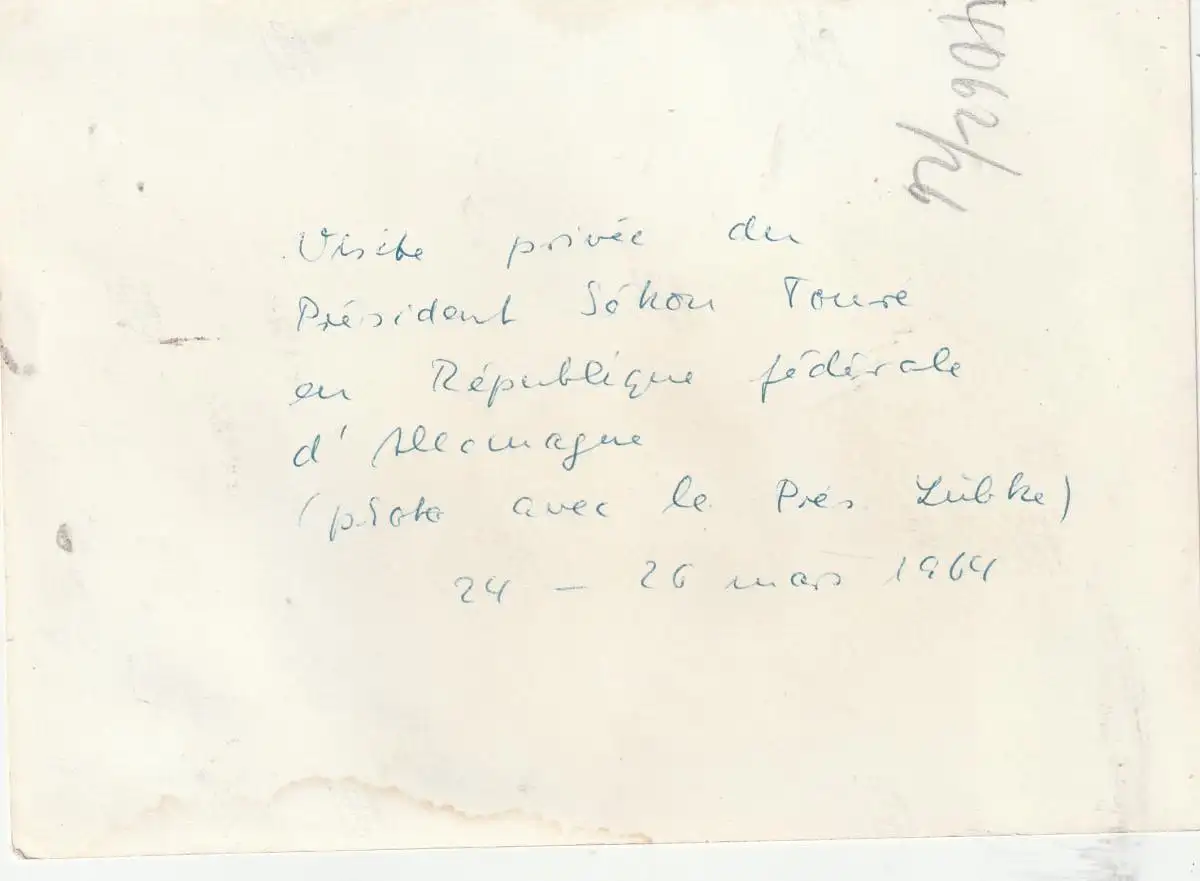 Visite privée du
Président Sékou Touré
en République fédérale
d'Allemagne
(photo avec le Prés Lübke)
24 – 26 mars 1964